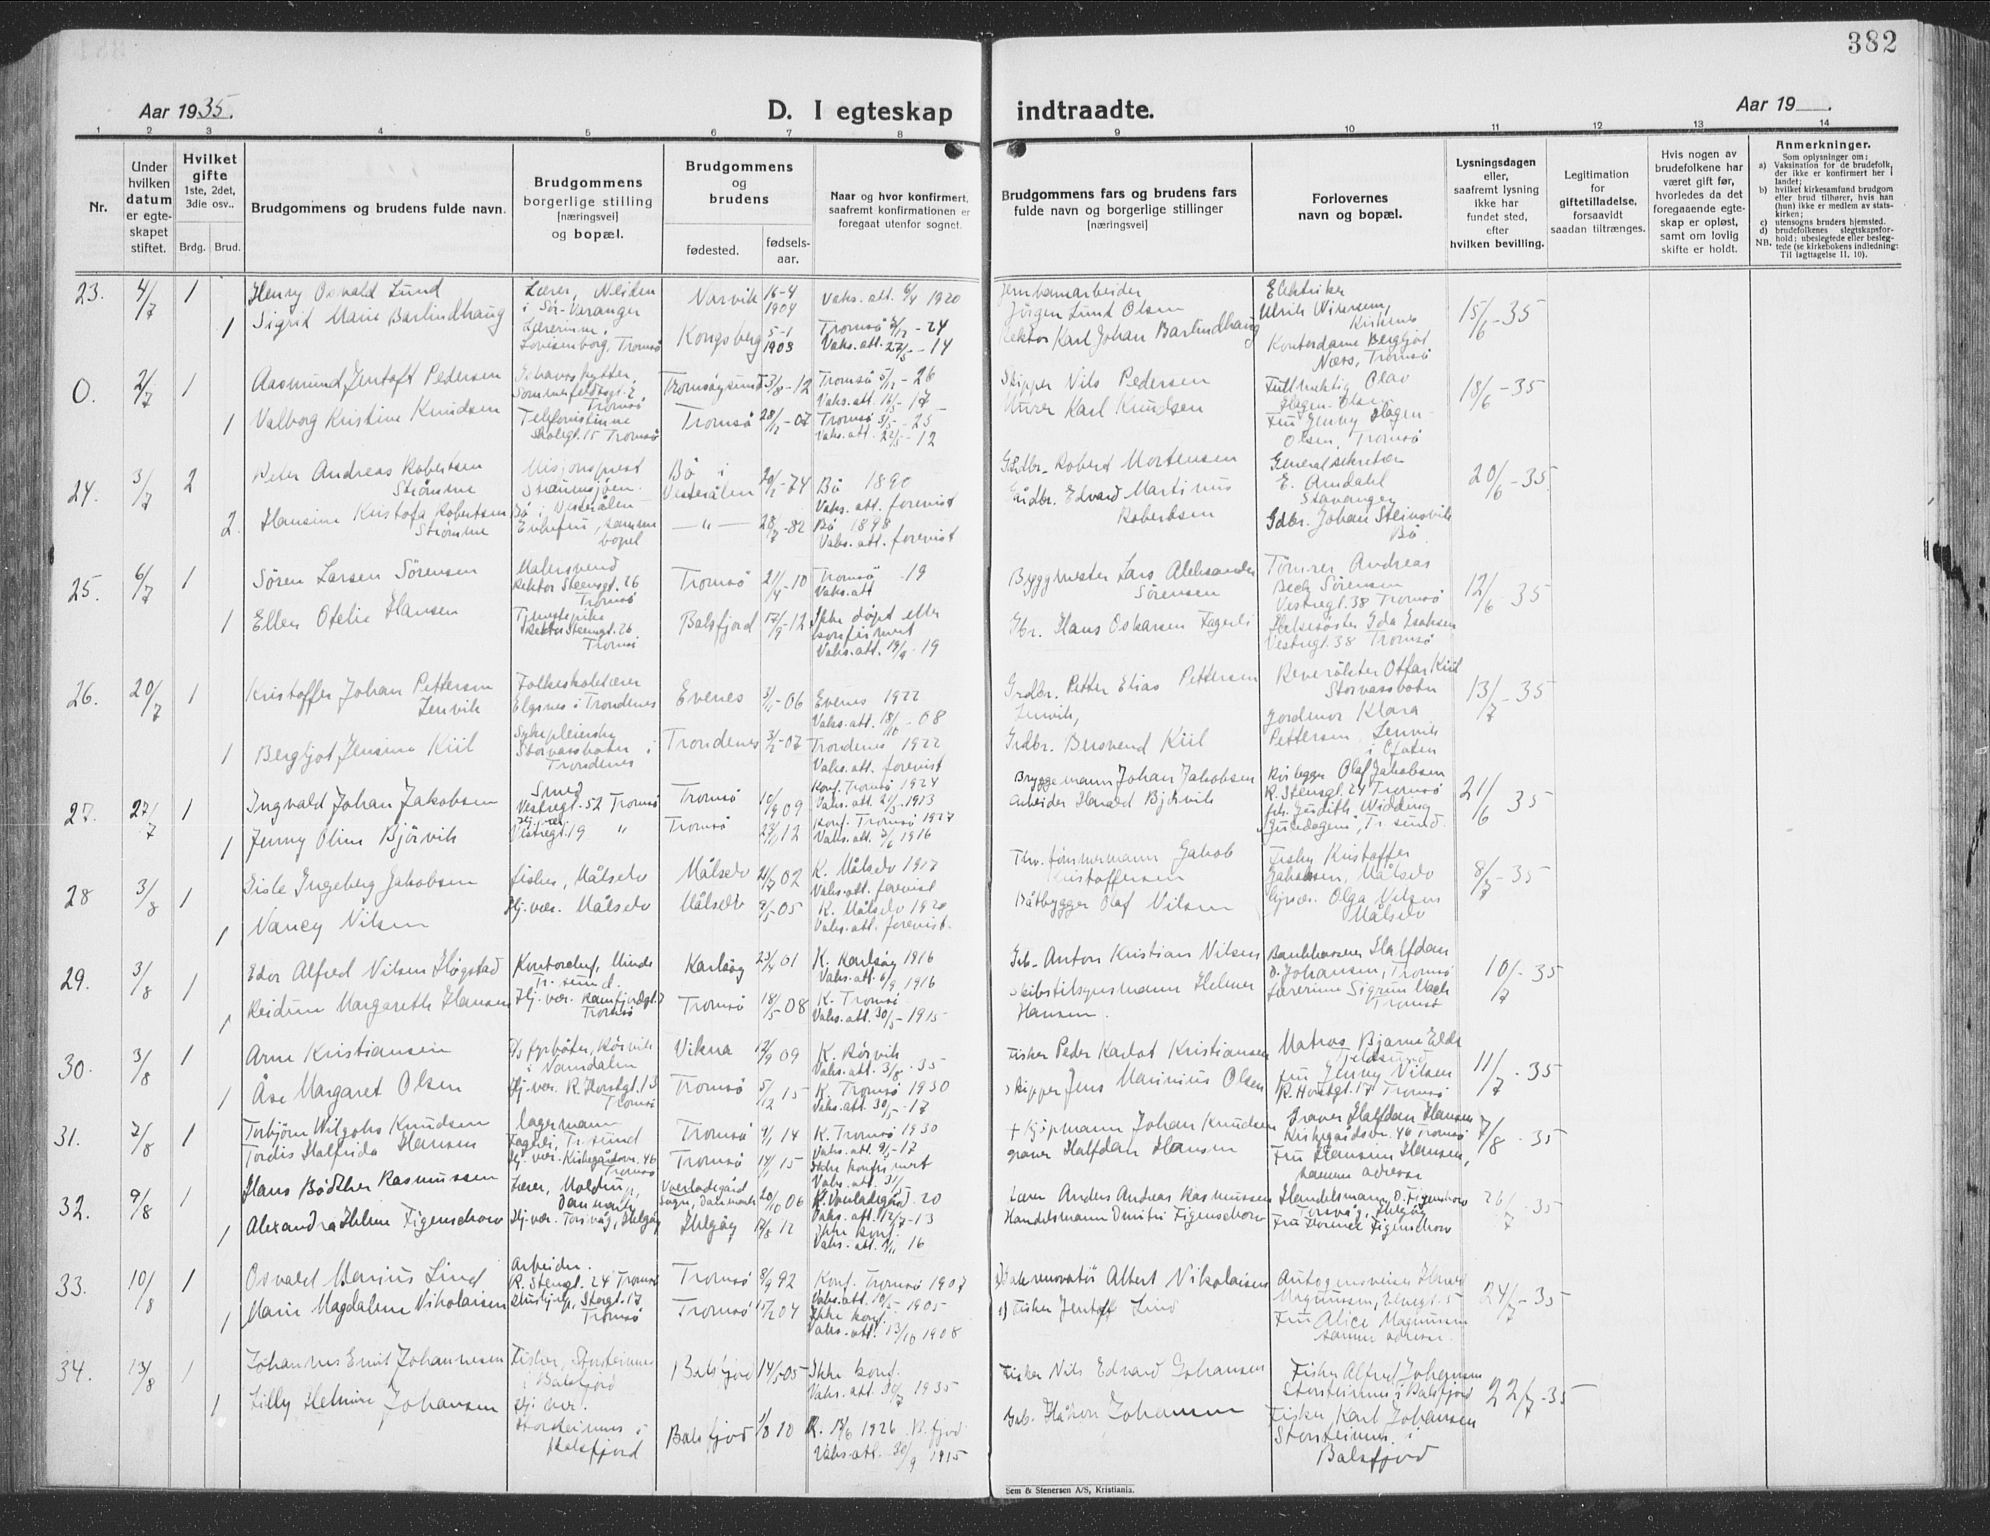 382
Aar 1935.
D. I egteskap
indtraadte.
Aar 19 .
1 2 3 4 5 6 7 8 9 10 11 12 13 14
Nr.
Under hvilken datum er egteskapet stiftet.
Hvilket gifte
1ste, 2det, 3die osv..
Brdg. Brud.
Brudgommens og brudens fulde navn.
Brudgommens borgerlige stilling [næringsvei] og bopæl.
Brudgommens og brudens
fødested.
fødselsaar.
Naar og hvor konfirmert, saafremt konfirmationen er foregaat utenfor sognet.
Brudgommens fars og brudens fars fulde navn og borgerlige stillinger [næringsvei]
Forlovernes navn og bopæl.
Lysningsdagen eller, saafremt lysning ikke har fundet sted, efter hvilken bevilling.
Legitimation for giftetilladelse, forsaavidt saadan tiltrænges.
Hvis nogen av brudefolkene har været gift før, hvorledes da det foregaaende egteskap er opløst, samt om lovlig skifte er holdt.
Anmerkninger.
Som oplysninger om:
a) Vaksination for de brudefolk, der ikke er konfirmert her i landet;
b) hvilket kirkesamfund brudgom eller brud tilhører, hvis han (hun) ikke er medlem av statskirken;
c) utensogns bruders hjemsted.
d) brudefolkenes slegtskapsforhold; ubeslegtede eller beslegtede (se kirkebokens indledning: Til iagttagelse 11, 10).
NB.
23. 4/7 1 Henry Osvald Lund
Lærer, Neiden i Sør-Varanger
Narvik 16-4 1904
Vaks. att. 6/4 1920
Jernbanearbeider Jørgen Lund Olsen
Elektriker Ulrik Wikersen, Kirkenes
15/6-35
1 Sigrid Marie Barlindhaug
Lærerinne, Lovisenborg, Tromsø
Kongsberg 5-1 1903
Tromsø -24
Vaks. att. -14
Rektor Karl Johan Barlindhaug
Kontordame Bergljot Næss, Tromsø
0. 2/7 1 Aasmund Jentoft Pedersen
Sommerfeldtsgt. Tromsø
Tromsøysund 3/8-12
Tromsø 5/12-26
Vaks. att. 16/5-17
Skipper Nils Pedersen
Fullmektig Olav Hagen-Olsen
18/6-35
1 Valborg Kristine Knudsen
Telefonistinne Skolegt. 15 Tromsø
Tromsø 28/2-07
Tromsø 3/5-25
Vaks. att. 22/5-12
Murer Karl Knudsen
Fru Jenny Hagen-Olsen, Tromsø
24. 3/7 2 Peter Andreas Robertsen Strømme
Misjonsprest Straumsjøen. Bø i Vesterålen
Bø i Vesterålen 20/2-74
Bø 1890
Vaks. att. forevist
Gårdbr. Robert Mortensen
Generalsekretær E. Amdahl Stavanger
20/6-35
2. Hansine Kristofa Robertsen Strømme
Enkefru, samme bopel
— " — 28/7-82
Bø 1898
Vaks. att. forevist
Gårdbr. Edvard Martinus Robertsen
Gdbr. Johan Steinsvik Bø
25. 6/7 1 Søren Larsen Sørensen
Malersvend Rektor Steensgt. 26 Tromsø
Tromsø 21/4-10
Tromsø
Vaks. att. -19
Byggmester Lars Aleksander Sørensen
Tømrer Andreas Bech Sørensen Vestregt. 38 Tromsø
12/6-35
1 Ellen Otelie Hansen
Tjenestepike Rektor Steensgt. 26 Tromsø
Balsfjord 17/9-12
Ikke døpt eller konfirmert
Vaks. att. 19/9-19
Gbr. Hans Oskarsen Fagerli
Helsesøster Ida Esaksen Vestregt. 38 Tromsø
26. 20/7 1 Kristoffer Johan Pettersen Lenvik
Folkeskolelærer Elgsnes i Trondenes
Evenes 3/1-06
Evenes 1922
Vaks. att. 18/10-08
Grdbr. Petter Elias Pettersen Lenvik,
Reverøkter Ottar Kiil Storvassbotn
13/7-35
1 Bergljot Jensine Kiil
Sykepleierske Storvassbotn i Trondenes
Trondenes 3/2-07
Trondenes 1922
Vaks. att. forevist
Grdbr. Bersvend Kiil
Jordmor Klara Pettersen Lenvik i Ofoten
27. 27/7 1 Ingvald Johan Jakobsen
Smed Vestregt. 52 Tromsø
Tromsø 10/9 09
Konf. Tromsø 1924
Vaks. att. 21/5 1913
Bryggemann Johan Jakobsen
Rørlegger Olaf Jakobsen R. Stensgt. 24 Tromsø
21/6 35
1 Jenny Oline Bjørvik
Hj. vær. Vestregt. 19 "
Tromsø 23/1 12
Konf. Tromsø 1927
Vaks. att. 3/6 1916
Arbeider Harald Bjørvik
frk. Judith Widding "Guledagen", Tr. sund.
28 3/8 1 Gisle Ingeberg Jakobsen
Fisker, Målselv
Målselv 21/7 02
K. Målselv 1917
Vaks. att. forevist
Thv. tømmermann Jakob Kristoffersen
Fisker Kristoffer Jakobsen, Målselv
8/7-35
1 Nancy Nilsen
Hj. vær. Målselv
Målselv 9/5-05
K. Målselv 1920
Vaks. att. forevist.
Båtbygger Olaf Nilsen
Hj. vær. Olga Nilsen Målselv
29. 3/8 1 Edor Alfred Nilsen Høgstad
Kontorchef, Minde Tr. sund.
Karlsøy 23/4 01
K. Karlsøy 1916
Vaks. att. 6/9 1916
Gb. Anton Kristian Nilsen
Bankkasserer Halfdan D. Johansen, Tromsø
10/7-35
1 Reidun Margareth Hansen
Hj. vær. Ramfjordgt. 7 Tromsø
Tromsø 18/5 08
K. Tromsø
Vaks. att. 30/5-1915
Skibstilsynsmann Helmer Hansen.
Lærerinne Sigrun Tromsø
30. 3/8 1 Arne Kristiansen
D/s fyrbøter, Rørvik i Namdalen
Vikna 12/9 09
K. Rørvik
Vaks. att. 3/8-35
Fisker Peder Karlot Kristiansen
Matros Bjarne Elde Tjeldsund
11/7-35
1 Åse Margaret Olsen
Hj. vær. R. Horstgt. 13 Tromsø
Tromsø 5/12 15
K. Tromsø 1930
Vaks. att. 30/5-17
Skipper Jens Marinius Olsen
Fru Jenny Nilsen R. Horstgt. 17 Tromsø
31. 7/8 1 Torbjørn Wilgohs Knudsen
Lagermann Fagerli, Tr. sund
Tromsø 9/1 14
K. Tromsø 1930
Vaks. att. 9/5-17
† skipmann Johan Knudsen
Graver Halfdan Hansen Kirkegårdsv. 46 Tromsø
7/8-35
1 Tordis Halfrida Hansen
Hj. vær. Kirkegårdsvn. 46 Tromsø
Tromsø 14/1 15
Ikke konfirmert
Vaks. att.
graver Halfdan Hansen
Fru Hansine Hansen, samme adresse
32. 9/8 1 Hans Bødker Rasmussen
Lærer, Danmark
Sogn, Danmark 20/10 06
-20
Vaks. att. 12/7-13
Lærer Anders Andreas Rasmussen
Handelsmann D. Figenschow Torsvåg, Helgøy
26/7-35
1 Alexandra Helene Figenschow
Hj. vær. Torsvåg, Helgøy
Helgøy 12/8 12
Ikke konf.
Vaks. att. 9/11 16
Handelsmann Demitri Figenschow
Fru Florence Figenschow
33. 10/8 1 Osvald Marius Lind
Arbeider. R. Stengt. 24 Tromsø
Tromsø 8/9 92
Konf. Tromsø 1907
Vaks. att. 10/5-1905
2) Gaterenovatør Albert Nikolaisen
Autogensveiser Magnussen, 5
24/7-35
1 Marie Magdalene Nikolaisen
Hushj., Storgt. 17 Tromsø
Tromsø 15/2 04
Ikke konf.
Vaks. att. 13/10 1908
1) Fisker Jentoft Lind
Fru Alice Magnussen samme adresse.
34. 13/8 1 Johannes Emil Johannesen
Fisker, Storsteinnes i Balsfjord
Balsfjord 14/5-05
Ikke konf.
Vaks. att. 30/7 1935
Fisker Nils Edvard Johansen
Fisker Alfred Johansen Storsteinnes i Balsfjord
22/7-35
1 Lilly Helmine Johansen
Hj. vær. Storsteinnes i Balsfjord
Balsfjord 1/8 10
K. 13/6 1926 B. fjord
Vaks. att. 30/9 1915
Gdb. Håkon Johansen
Fisker Karl Johansen Storsteinnes i Balsfjord
Sem & Stenersen A/S, Kristiania.